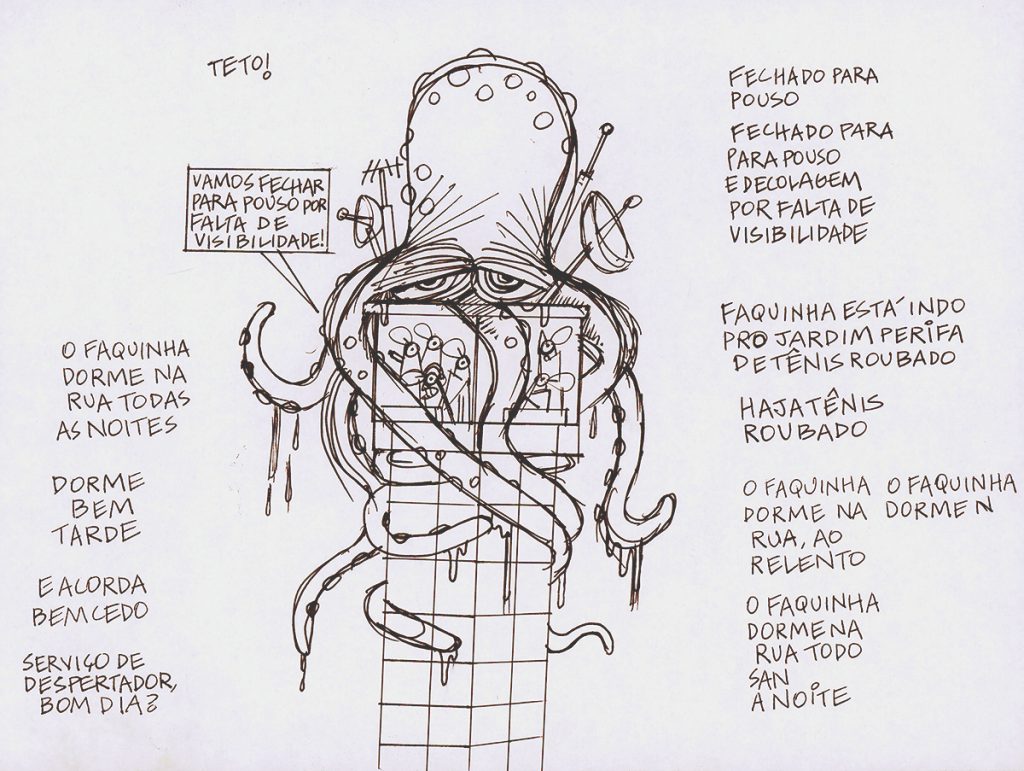 TETO!
VAMOS FECHAR
PARA POUSO POR
FALTA DE
VISIBILIDADE!
O FAQUINHA
DORME NA
RUA TODAS
AS NOITES
DORME
BEM
TARDE
E ACORDA
BEM CEDO
SERVIÇO DE
DESPERTADOR,
BOM DIA?
FECHADO PARA
POUSO
FECHADO PARA
PARA POUSO
E DECOLAGEM
POR FALTA DE
VISIBILIDADE
FAQUINHA ESTÁ INDO
PRO JARDIM PERIFA
DE TÊNIS ROUBADO
HAJA TÊNIS
ROUBADO
O FAQUINHA
DORME NA
RUA, AO
RELENTO
O FAQUINHA
DORME N
O FAQUINHA
DORME NA
RUA TODO
SAN
A NOITE